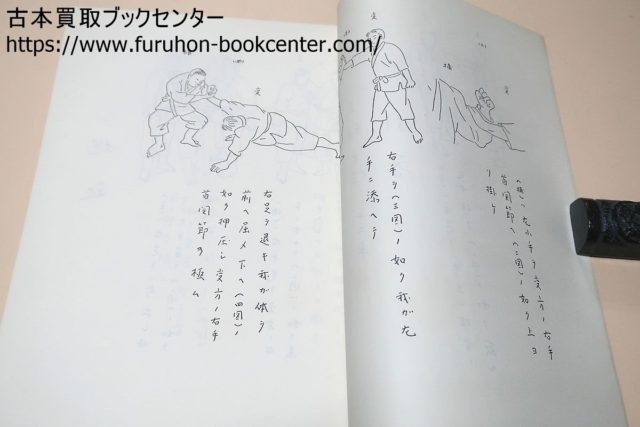 古本買取ブックセンター
https://www.furuhon-bookcenter.com/
受
捕
受
(捕)ハ左小手ヲ受方ノ右手
首関節ヘ(二図)ノ如ク上ヨ
リ掛ケ
右手ヲ(三図)ノ如ク我ガ左
手ニ添ヘテ
受
右足ヲ退キ我ガ体ヲ
前ヘ屈メ下ヘ(四図)ノ
如ク押圧シ受方ノ右手
首関節ヲ極ム